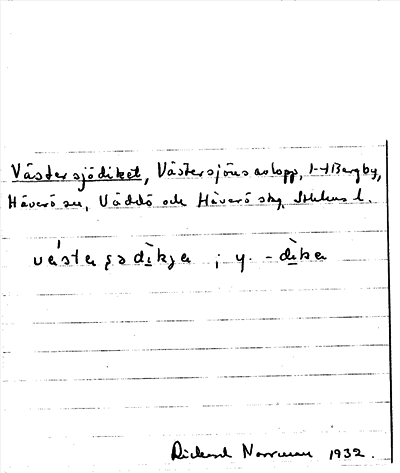 Västersjödiket, Västersjöns avlopp, 1-4 Bergby,
Häverö sn, Väddö och Häverö skg, Sthlms l.
västa ṣə dìkja ; y. -dìka
Rickard Norrman 1932.